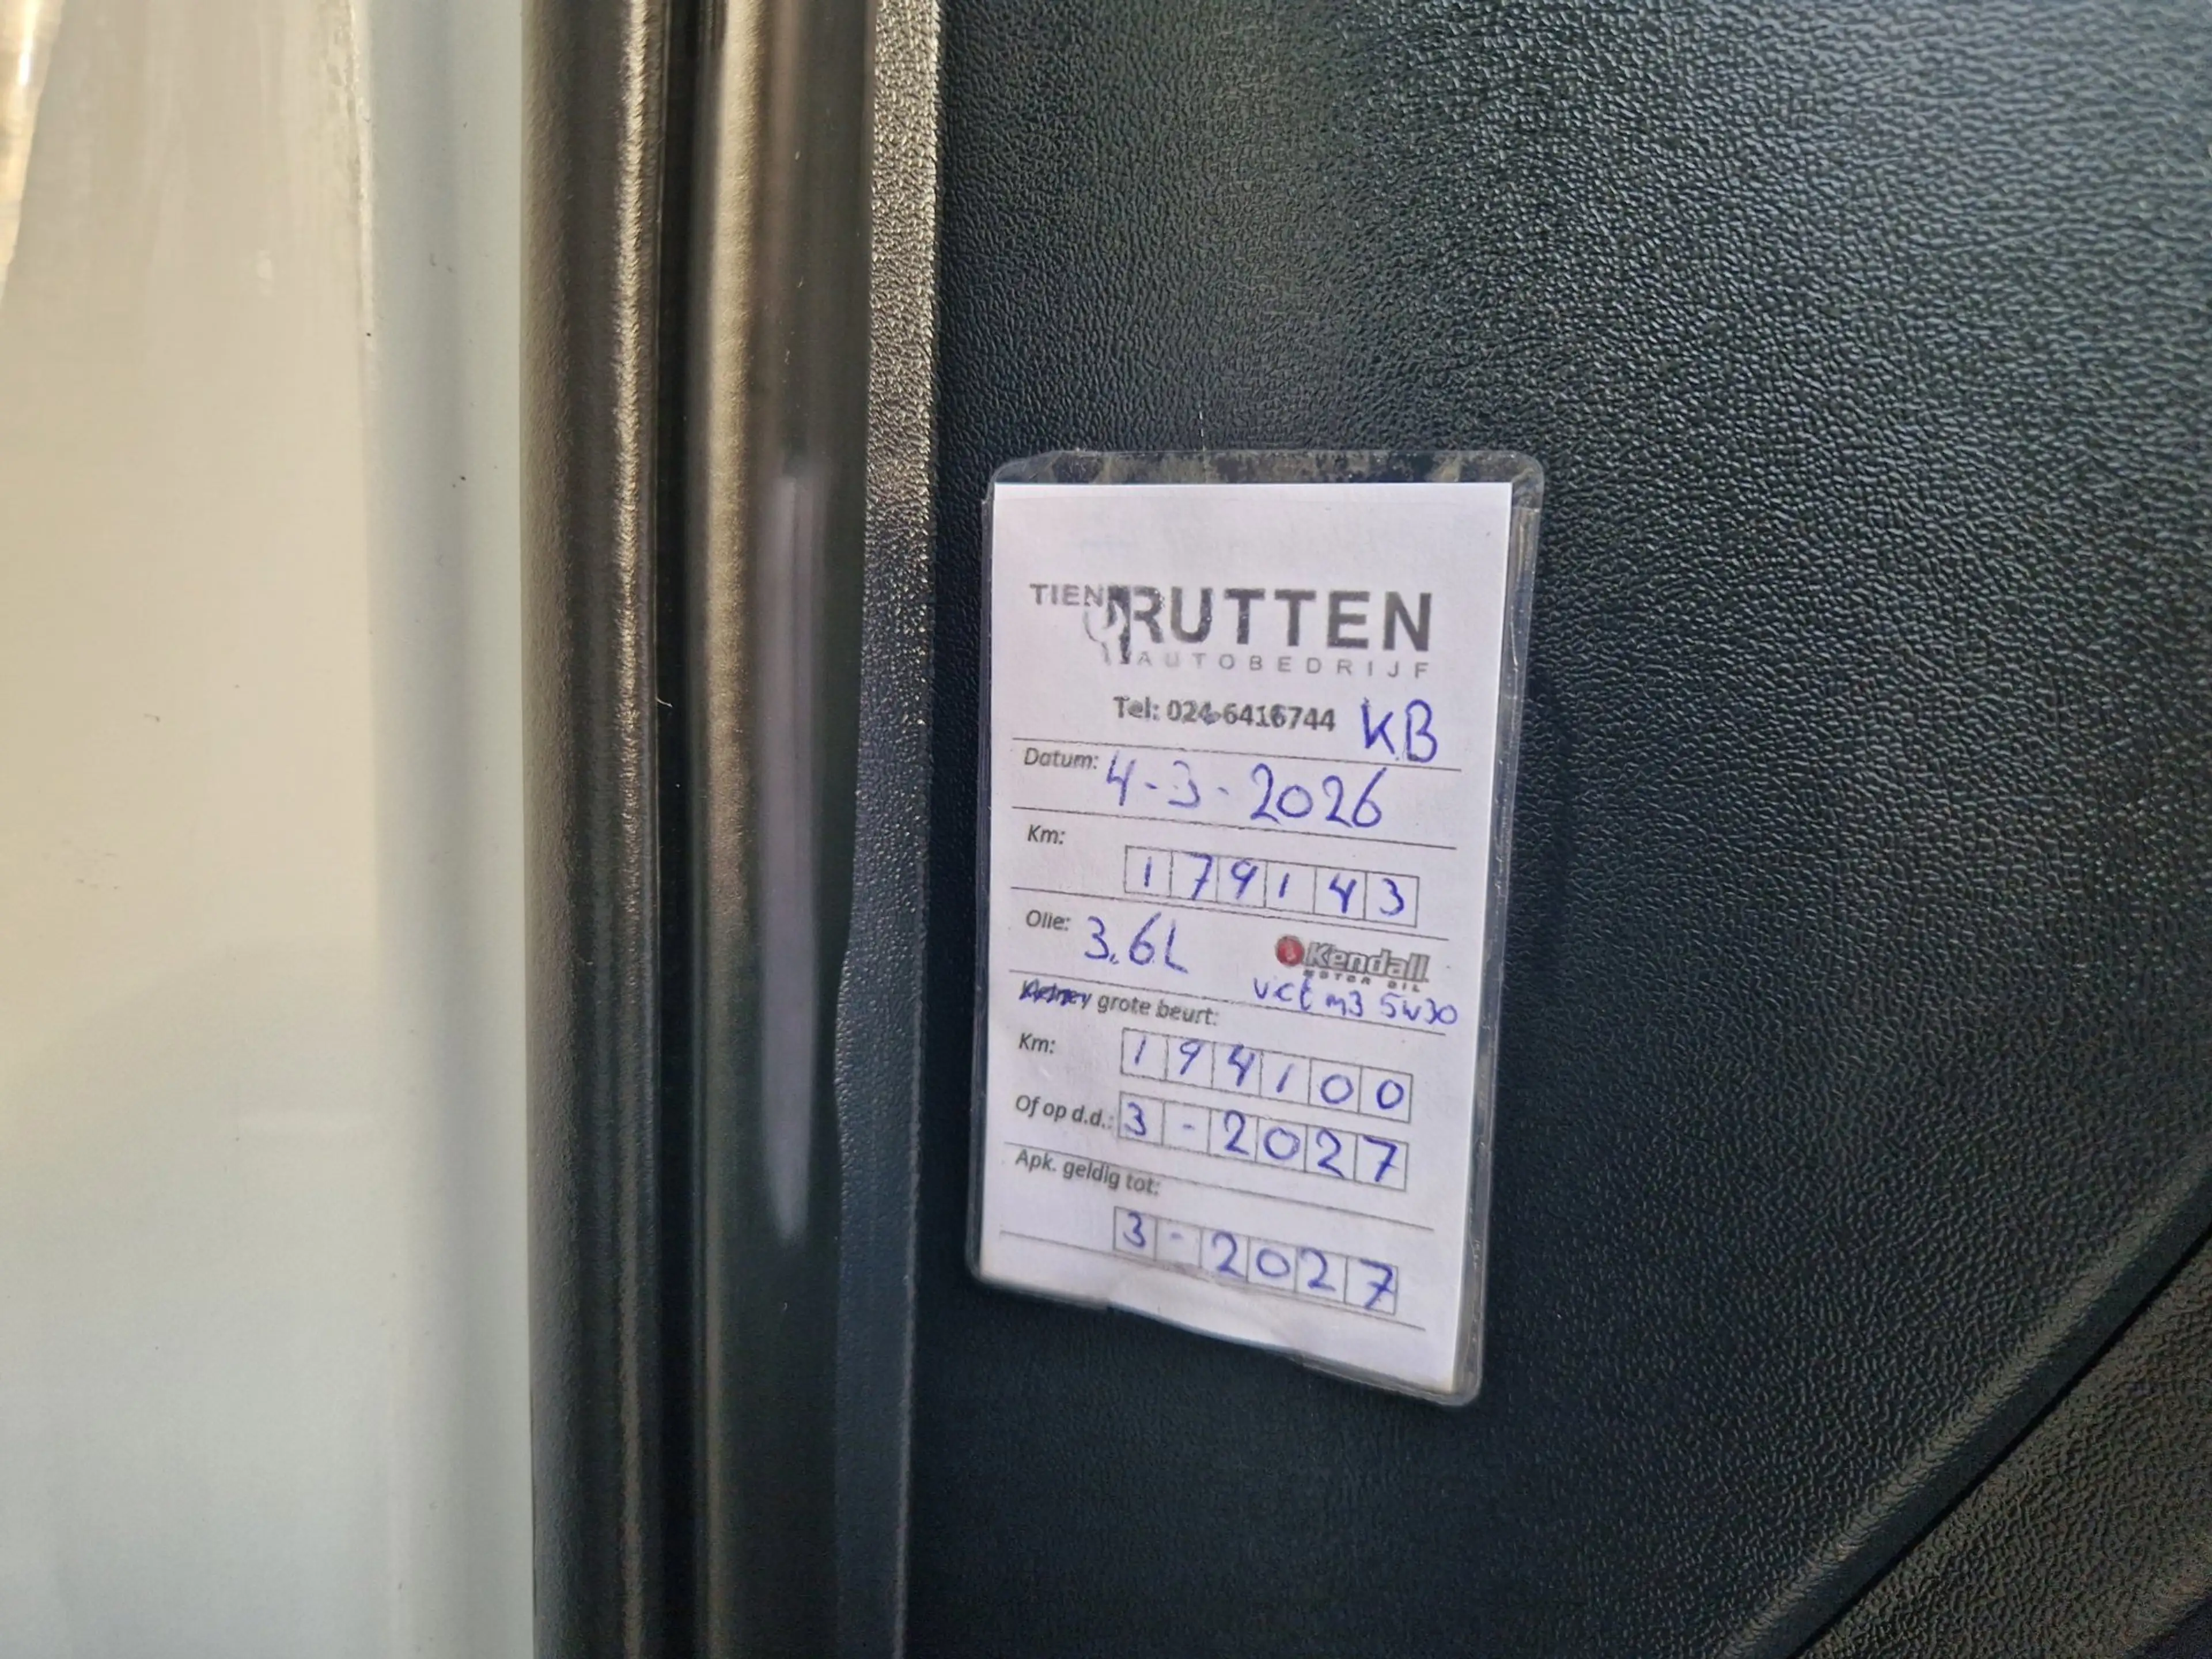 TIEN RUTTEN
AUTOBEDRIJF
Tel: 024-6416744 KB
Datum: 4-3-2026
Km:
179143
Olie: 3.6L Kendall
MOTOR OIL
vct m3 5w30
grote beurt:
Km: 194100
Of op d.d.: 3-2027
Apk. geldig tot:
3-2027